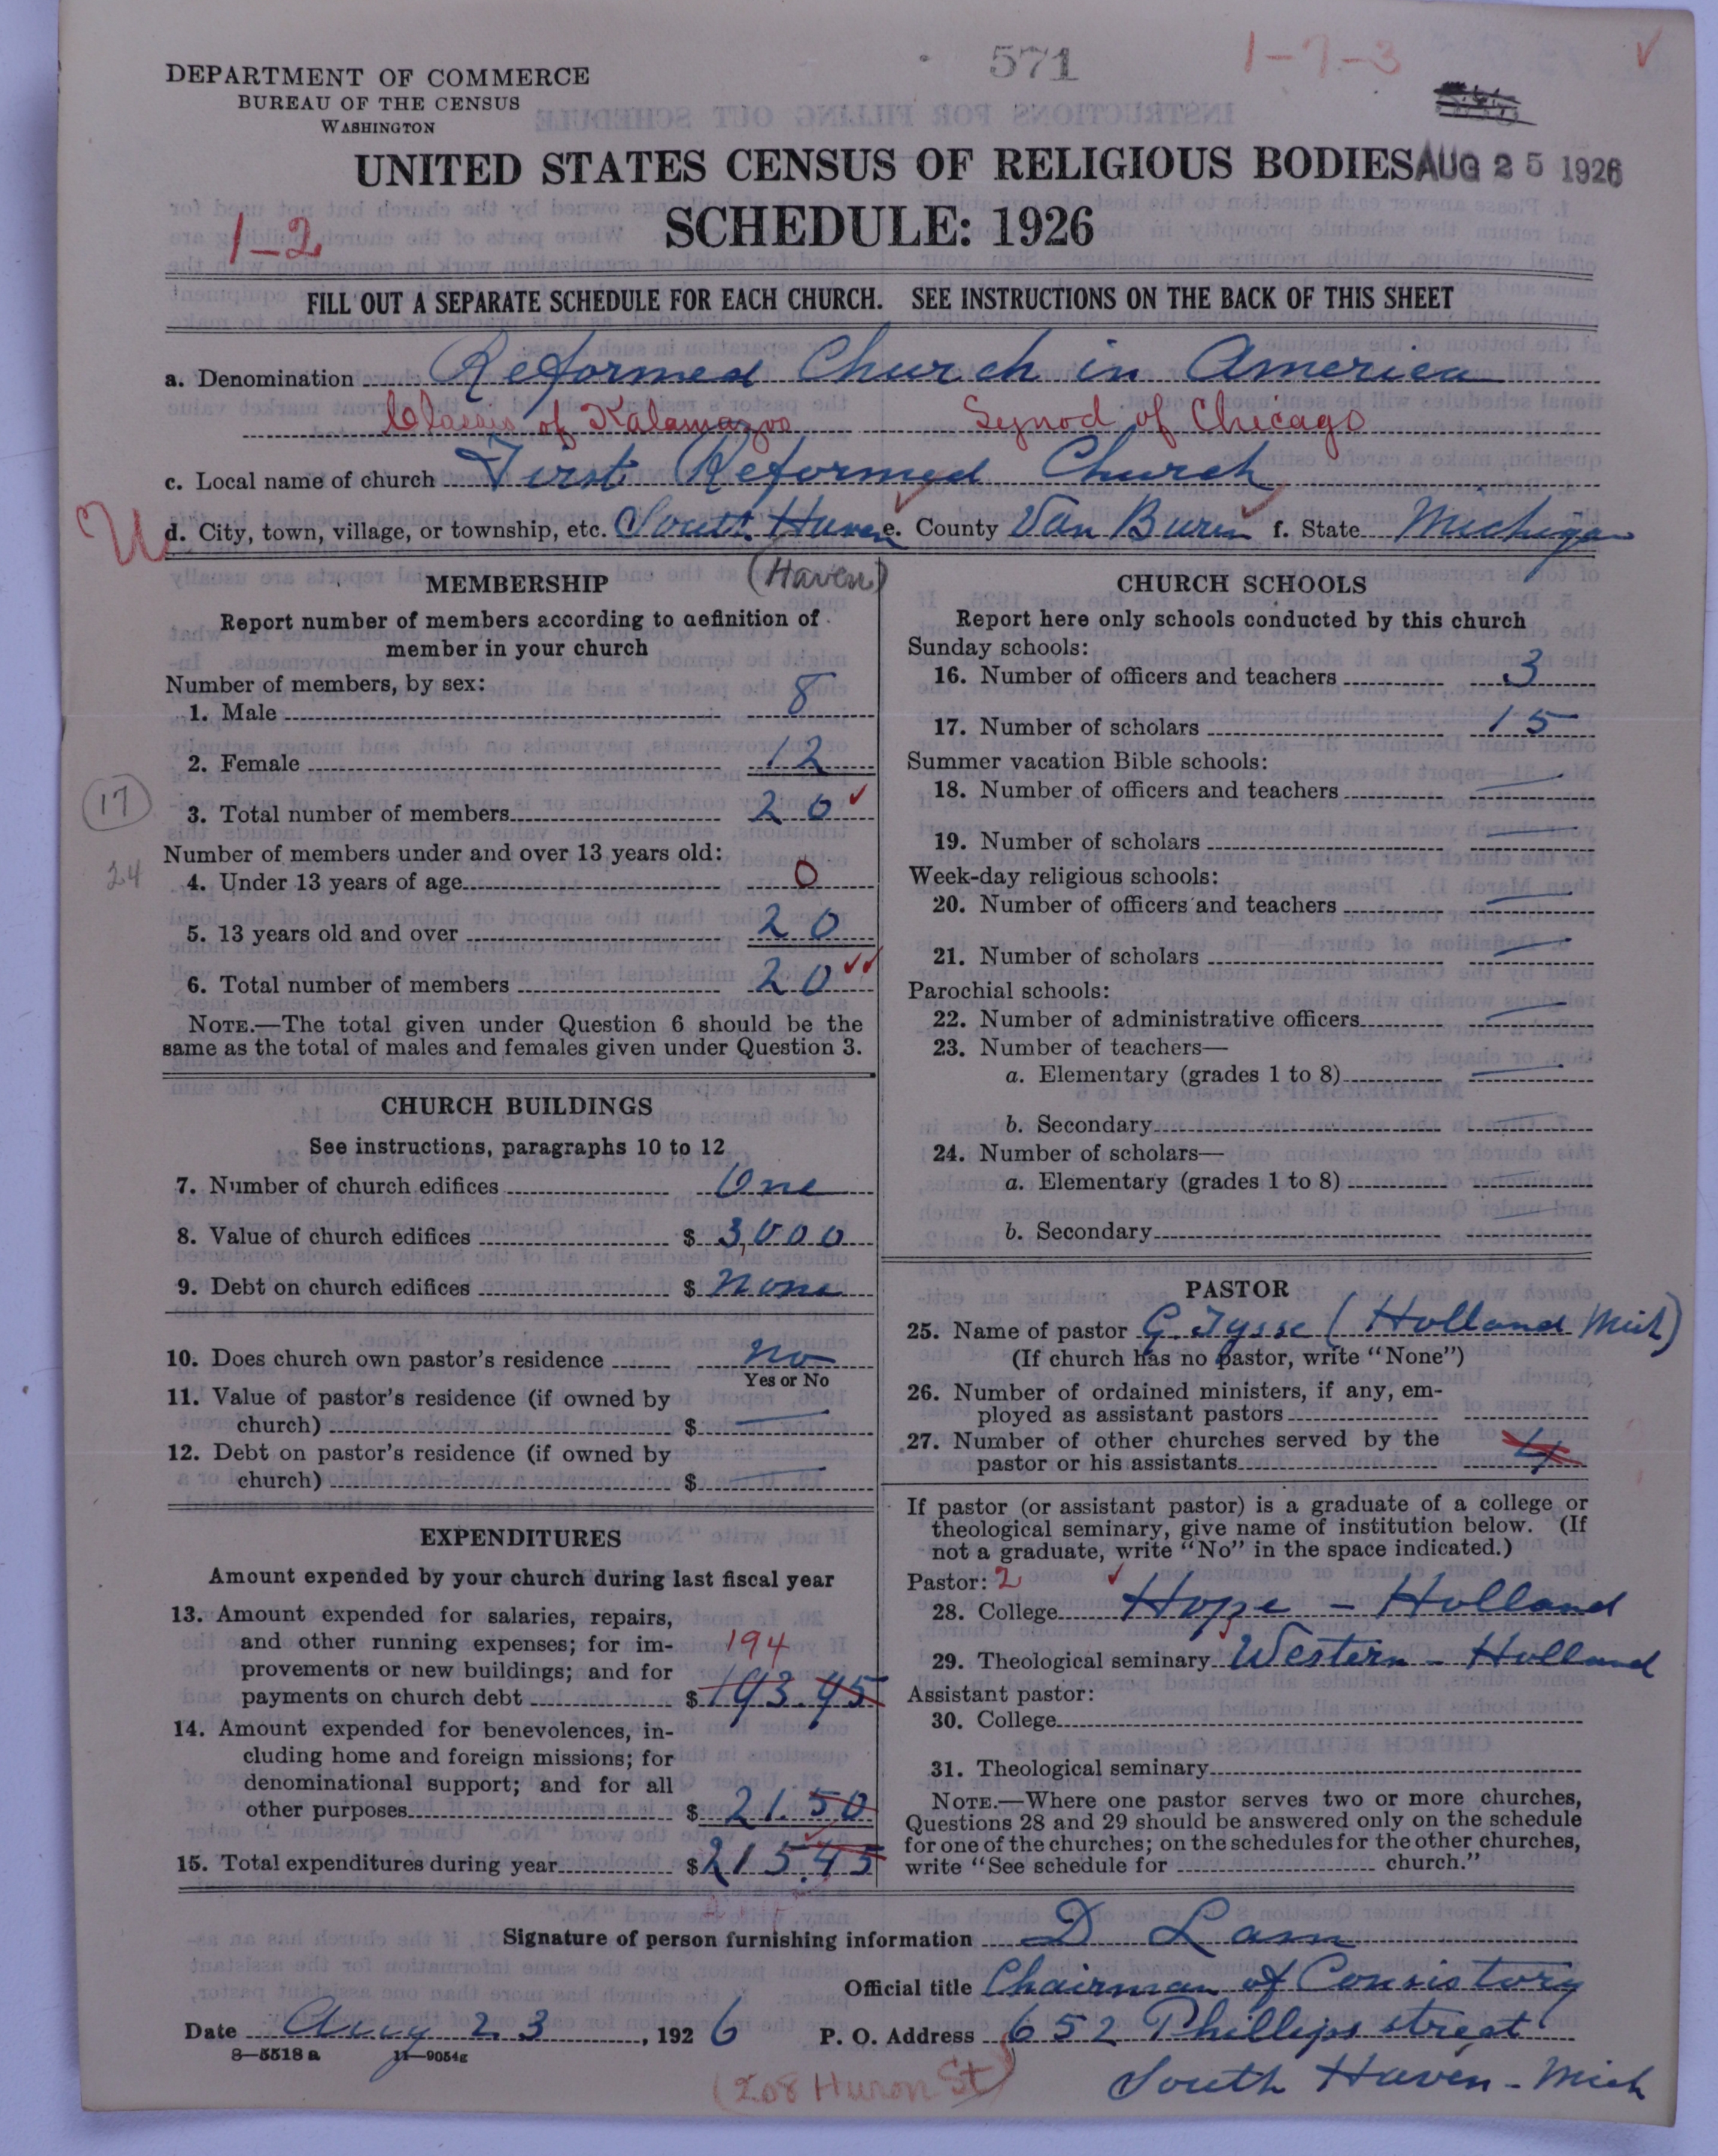 571
1-7-3
DEPARTMENT OF COMMERCE
BUREAU OF THE CENSUS
WASHINGTON
UNITED STATES CENSUS OF RELIGIOUS BODIES AUG 25 1926
SCHEDULE: 1926
1-2
FILL OUT A SEPARATE SCHEDULE FOR EACH CHURCH. SEE INSTRUCTIONS ON THE BACK OF THIS SHEET
a. Denomination Reformed Church in America
Classis of Kalamazoo Synod of Chicago
c. Local name of church First Reformed Church
U d. City, town, village, or township, etc. South Haven e. County Van Buren f. State Michigan
(Haven)
MEMBERSHIP
Report number of members according to definition of
member in your church
Number of members, by sex:
1. Male 8
2. Female 12
17
3. Total number of members 20
Number of members under and over 13 years old:
24
4. Under 13 years of age 0
5. 13 years old and over 20
6. Total number of members 20
NOTE.—The total given under Question 6 should be the
same as the total of males and females given under Question 3.
CHURCH BUILDINGS
See instructions, paragraphs 10 to 12
7. Number of church edifices One
8. Value of church edifices $ 3,000
9. Debt on church edifices $ None
10. Does church own pastor's residence No
Yes or No
11. Value of pastor's residence (if owned by
church) $ —
12. Debt on pastor's residence (if owned by
church) $ —
EXPENDITURES
Amount expended by your church during last fiscal year
13. Amount expended for salaries, repairs,
and other running expenses; for im-
provements or new buildings; and for
194
payments on church debt $ 193.95
14. Amount expended for benevolences, in-
cluding home and foreign missions; for
denominational support; and for all
other purposes $ 21.50
15. Total expenditures during year $ 215.45
CHURCH SCHOOLS
Report here only schools conducted by this church
Sunday schools:
16. Number of officers and teachers 3
17. Number of scholars 15
Summer vacation Bible schools:
18. Number of officers and teachers —
19. Number of scholars —
Week-day religious schools:
20. Number of officers and teachers —
21. Number of scholars —
Parochial schools:
22. Number of administrative officers —
23. Number of teachers—
a. Elementary (grades 1 to 8) —
b. Secondary —
24. Number of scholars—
a. Elementary (grades 1 to 8) —
b. Secondary —
PASTOR
25. Name of pastor G. Tysse (Holland Mich)
(If church has no pastor, write "None")
26. Number of ordained ministers, if any, em-
ployed as assistant pastors
27. Number of other churches served by the
pastor or his assistants 4
If pastor (or assistant pastor) is a graduate of a college or
theological seminary, give name of institution below. (If
not a graduate, write "No" in the space indicated.)
Pastor: 2
28. College Hope - Holland
29. Theological seminary Western - Holland
Assistant pastor:
30. College
31. Theological seminary
NOTE.—Where one pastor serves two or more churches,
Questions 28 and 29 should be answered only on the schedule
for one of the churches; on the schedules for the other churches,
write "See schedule for church."
Signature of person furnishing information D Lam
Official title Chairman of Consistory
Date Aug 23, 1926 P. O. Address 652 Phillips street
8-5518 a 11-9054g
(208 Huron St) South Haven - Mich